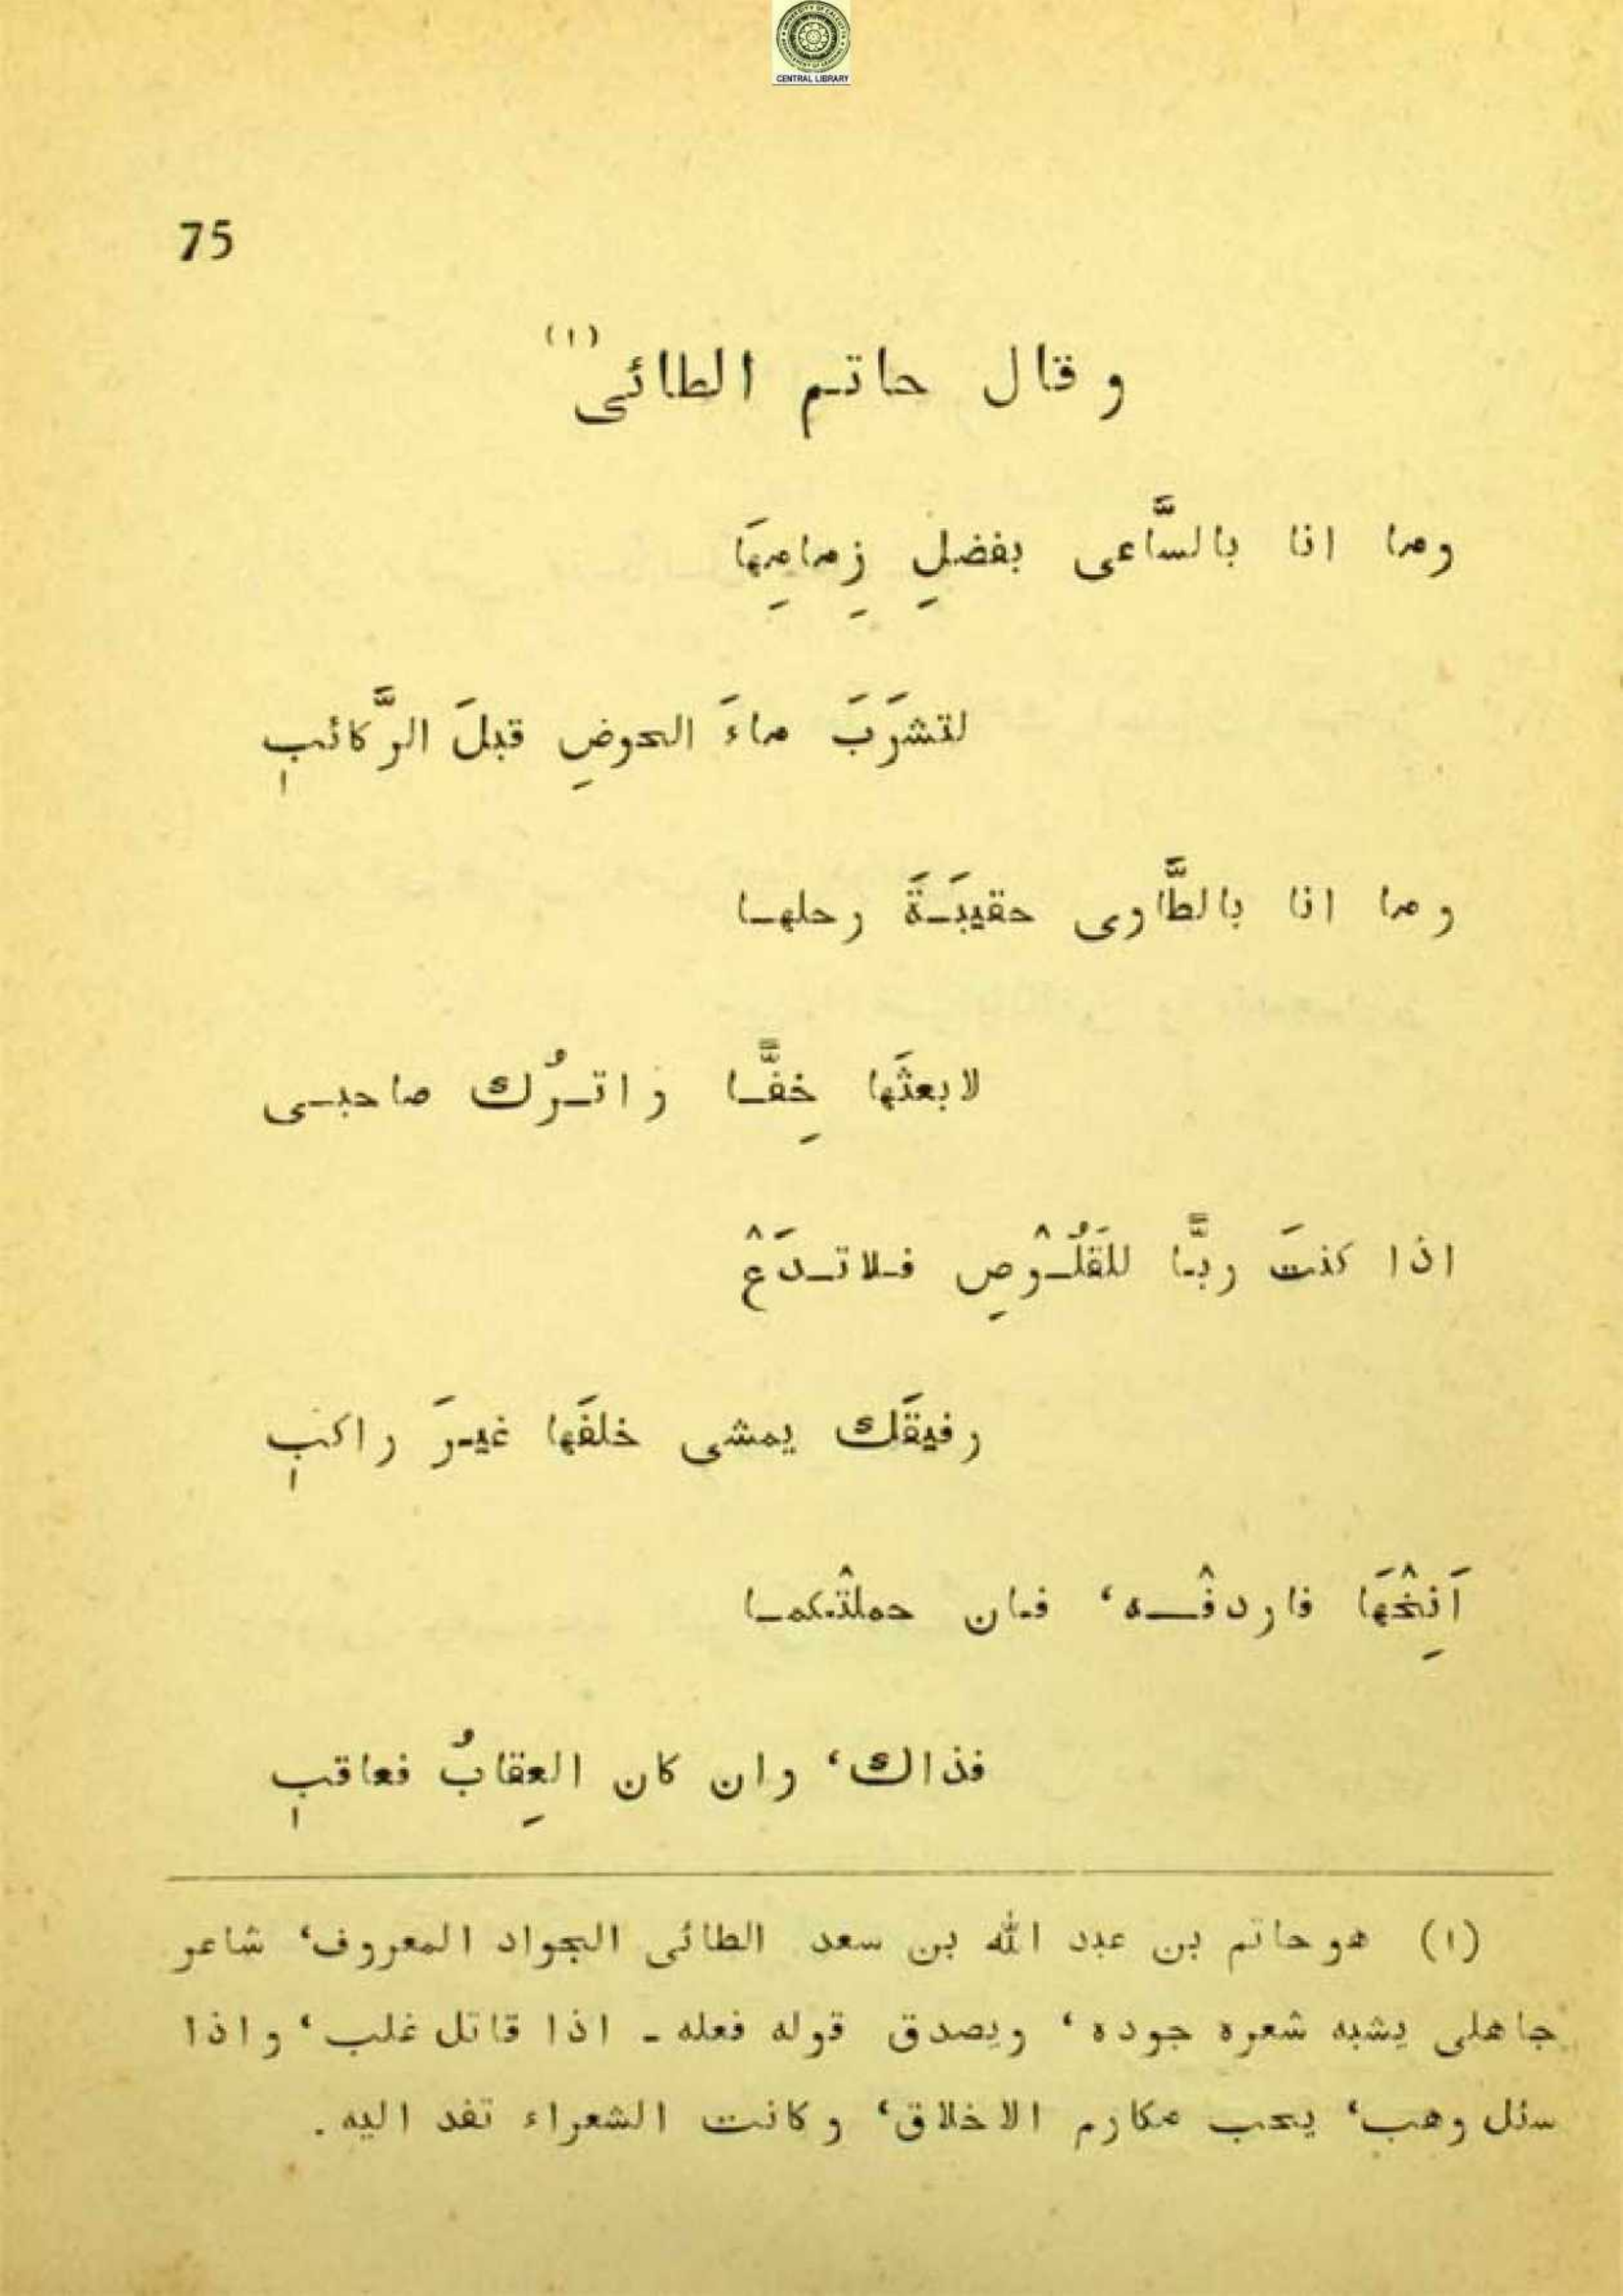 CENTRAL LIBRARY
75
وقال حاتم الطائى (١)
وما انا بالسَّاعى بفضلِ زِمامِهَا
لتشرَبَ ماءَ الحوضِ قبلَ الرَّكائبِ
وما انا بالطَّاوى حقيبَةَ رحلها
لابعثَها خِفًّا واترُك صاحبى
اذا كنتَ ربًّا للقَلُوْصِ فلاتدَعْ
رفيقَك يمشى خلفَها غيرَ راكبِ
اَنِخْهَا فاردفْه، فان حملتْكما
فذاك، وان كان العِقابُ فعاقبِ
(١) هو حاتم بن عبد الله بن سعد الطائى الجواد المعروف، شاعر
جاهلى يشبه شعره جوده، ويصدق قوله فعله ـ اذا قاتل غلب، واذا
سئل وهب، يحب مكارم الاخلاق، وكانت الشعراء تفد اليه.